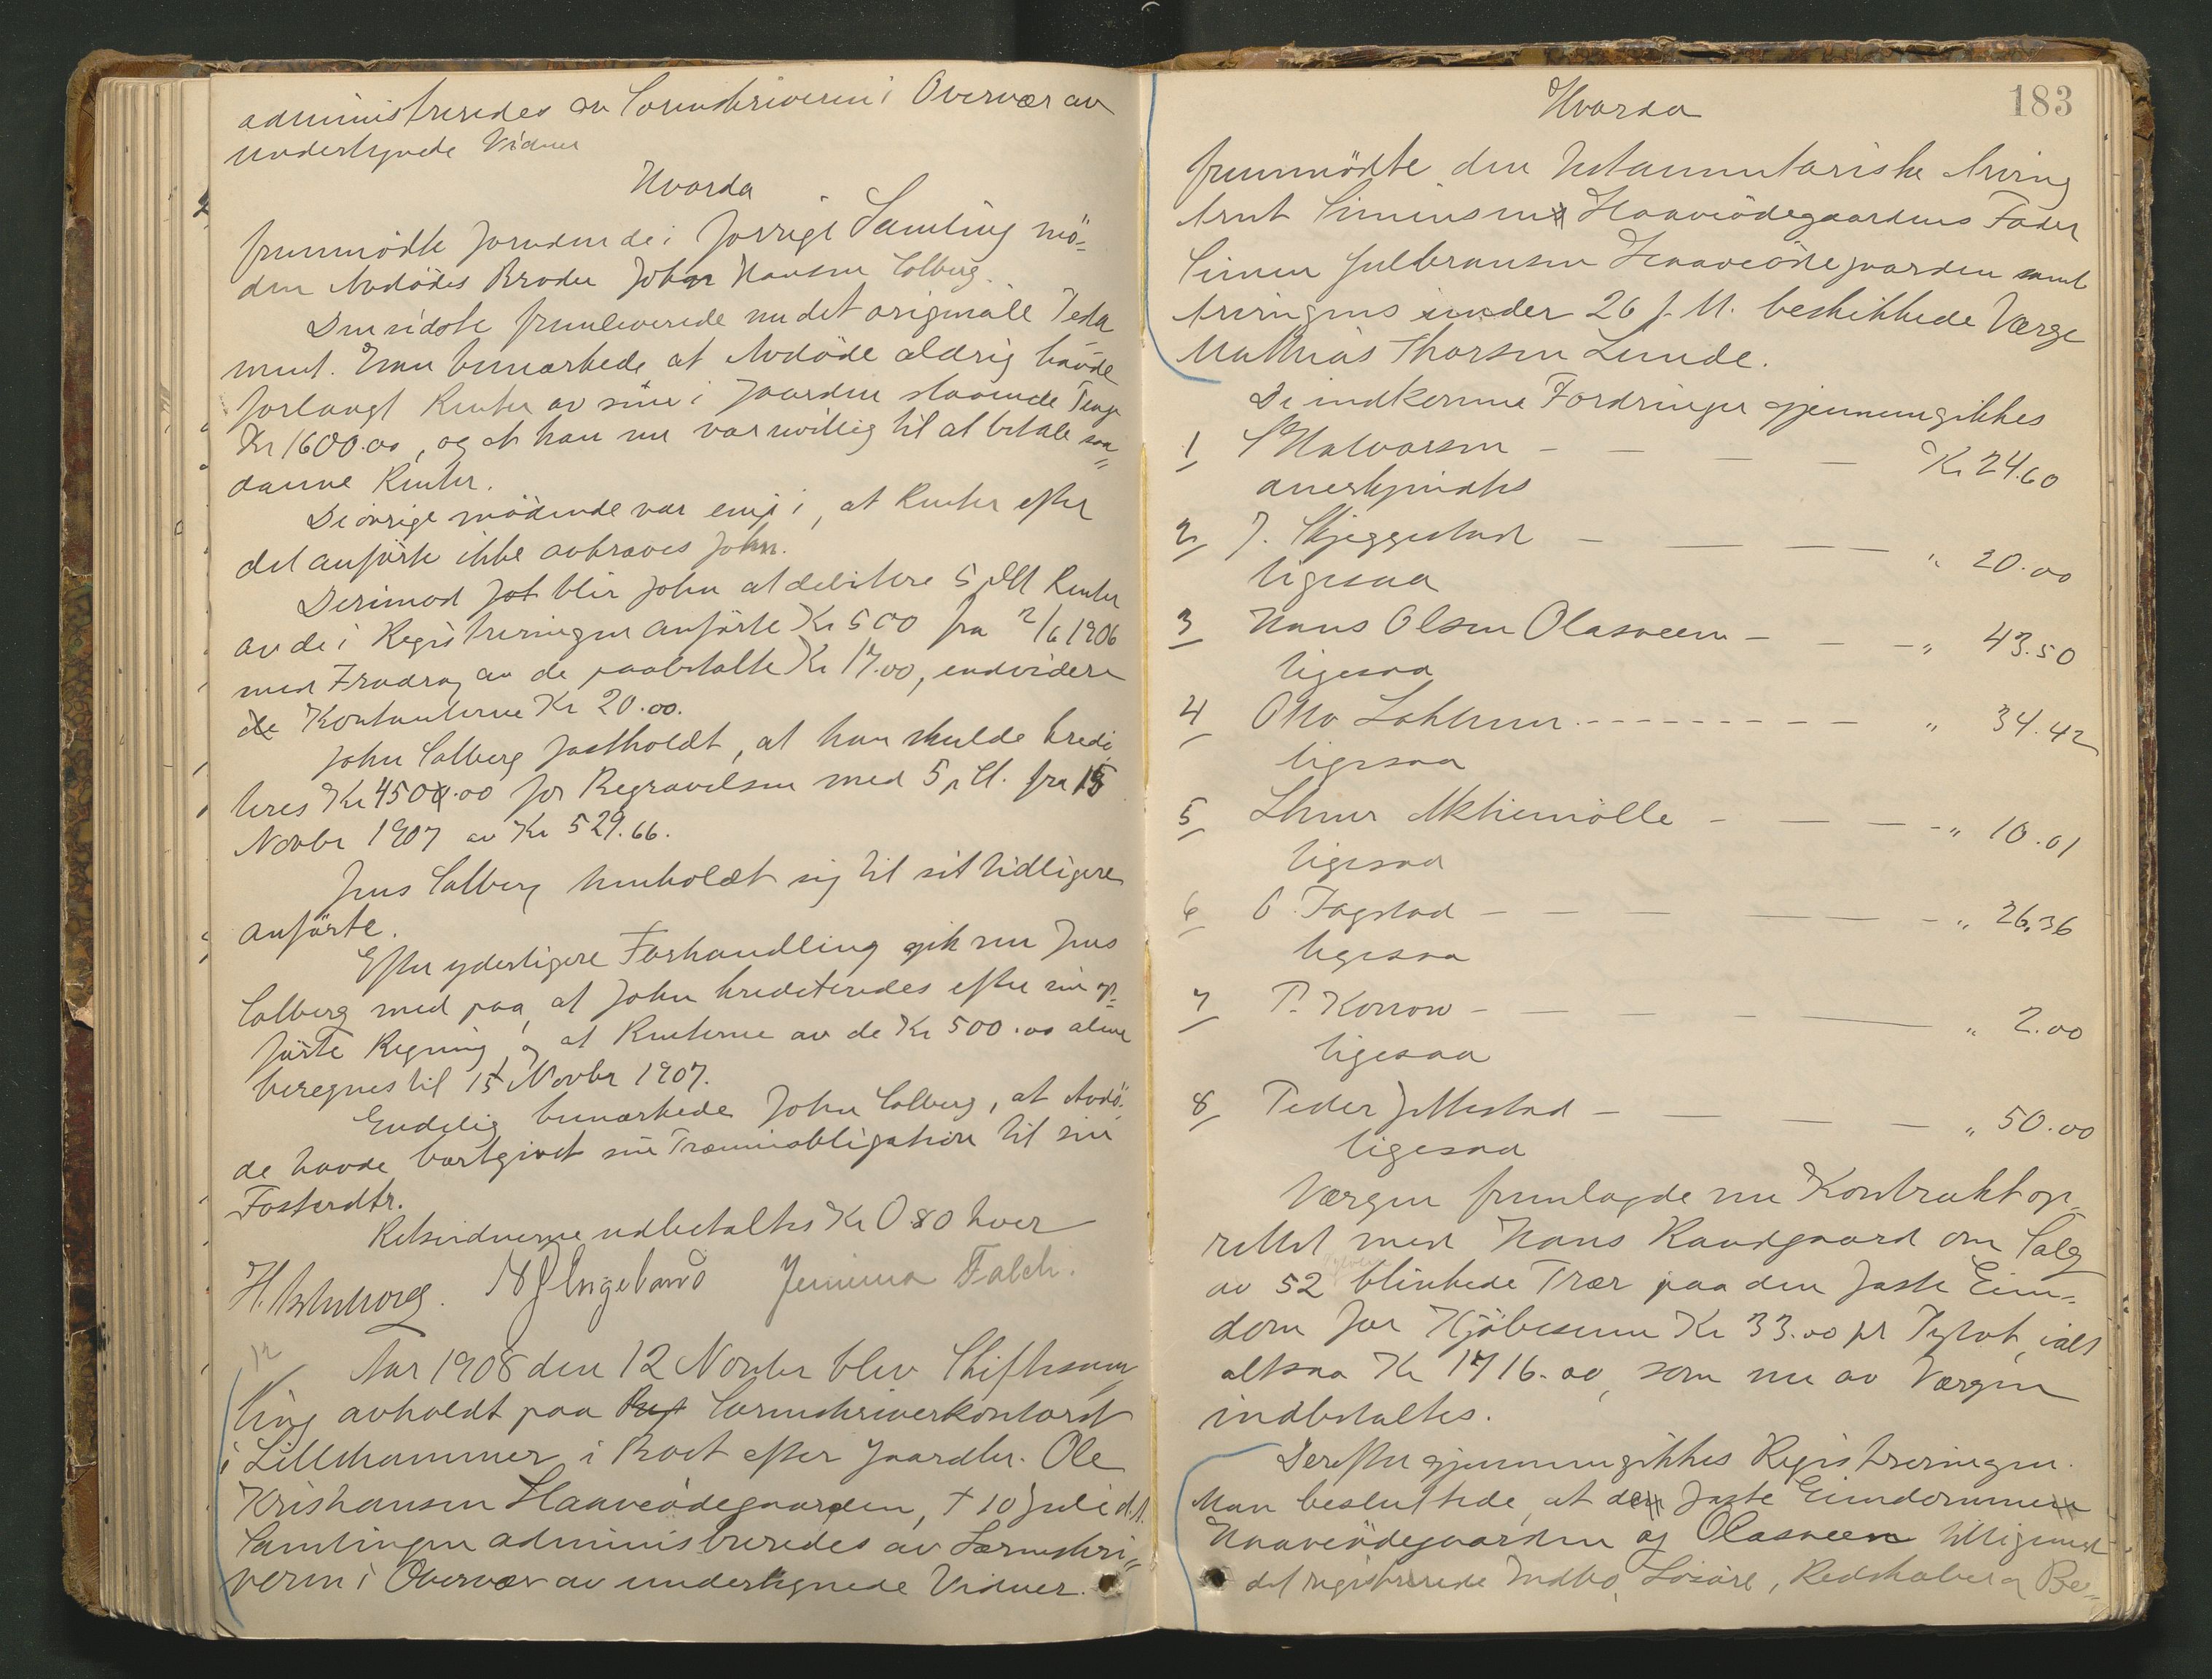 administreredes av Sorenskriveren i Overvær av
undertegnede Vidner
Hvorda
fremmödte foruden de i forrige Samling mö-
den Avdödes Broder John Hansen Solberg.
Den sidste fremleverede nu det originale Testa
ment. Han bemærkede at Avdöde aldrig havde
forlangt Renter av sine i Gaarden staaende Penge
Kr 1600.00, og at han nu var uvillig til at betale saa-
danne Renter.
De övrige mödende var enig i, at Renter efter
det anförte ikke avkræves John.
Derimod blir John at debitere 5 pCt Renter
av de i Registreringen anförte Kr 500 fra 2/6 1906
med Fradrag av de paabetalte Kr 17.00, endvidere
de Kontanterne Kr 20.00.
John Solberg fastholdt, at han skulde kredi
teres Kr 450.00 for Begravelsen med 5 pCt. fra 15
Novbr 1907 av Kr 529.66.
Jens Solberg henholdt sig til sit tidligere
anförte.
Efter yderligere Forhandling gik nu Jens
Solberg med paa, at John krediteredes efter sin op-
förte Regning, og at Renterne av de Kr 500.00 alene
beregnes til 15 Novbr 1907.
Endelig bemærkede John Solberg, at Avdö-
de havde bortgivet sin Præmieobligation til sin
Fosterdtr.
Retsvidnerne udbetaltes Kr 0 80 hver
N J Engeland Jemima Falch.
Aar 1908 den 12 Novbr blev Skiftesam-
ling avholdt paa Sorenskriverkontoret
i Lillehammer i Boet efter Gaardbr. Ole
Kristiansen Haaveödegaarden, † 10 Juli d.A.
Samlingen administreredes av Sorenskri-
veren i Overvær av undertegnede Vidner.
183
Hvorda
fremmödte den testamentariske Arving
Arnt Simensen Haaveödegaardens Fader
Simen Gulbransen Haaveödegaarden samt
Arvingens under 26 f. M. beskikkede Værge
Mathias Thorsen Lunde.
De indkomne Fordringer gjennemgikkes
1, S Halvorsen - - - - Kr 24.60
anerkjendtes
2, J. Skjeggestad - - - - " 20.00
ligesaa
3 Hans Olsen Olasveen - - - " 43.50
ligesaa
4 Otto Lohrmann - - - - " 34.42
ligesaa
5 Aktiemölle - - - - " 10.01
ligesaa
6 O. Fagstad - - - - - " 26,36
ligesaa
7 P. Korrow - - - - " 2.00
ligesaa
8, Peder Jillestad - - - - " 50.00
ligesaa
Værgen fremlagde nu Kontrakt op-
rettet med Hans Randgaard om Salg
av 52 tylvter blinkede Trær paa den faste Eien-
dom for Kjöbesum Kr 33.00 pr Tylvt, ialt
altsaa Kr 1716.00, som nu av Værgen
indbetaltes.
Derefter gjennemgikkes Registreringen.
Man besluttede, at de faste Eiendomme
Haaveödegaarden og Olasveen tilligemed
det registrerede Indbo, Lösöre, Redskaber og Be-